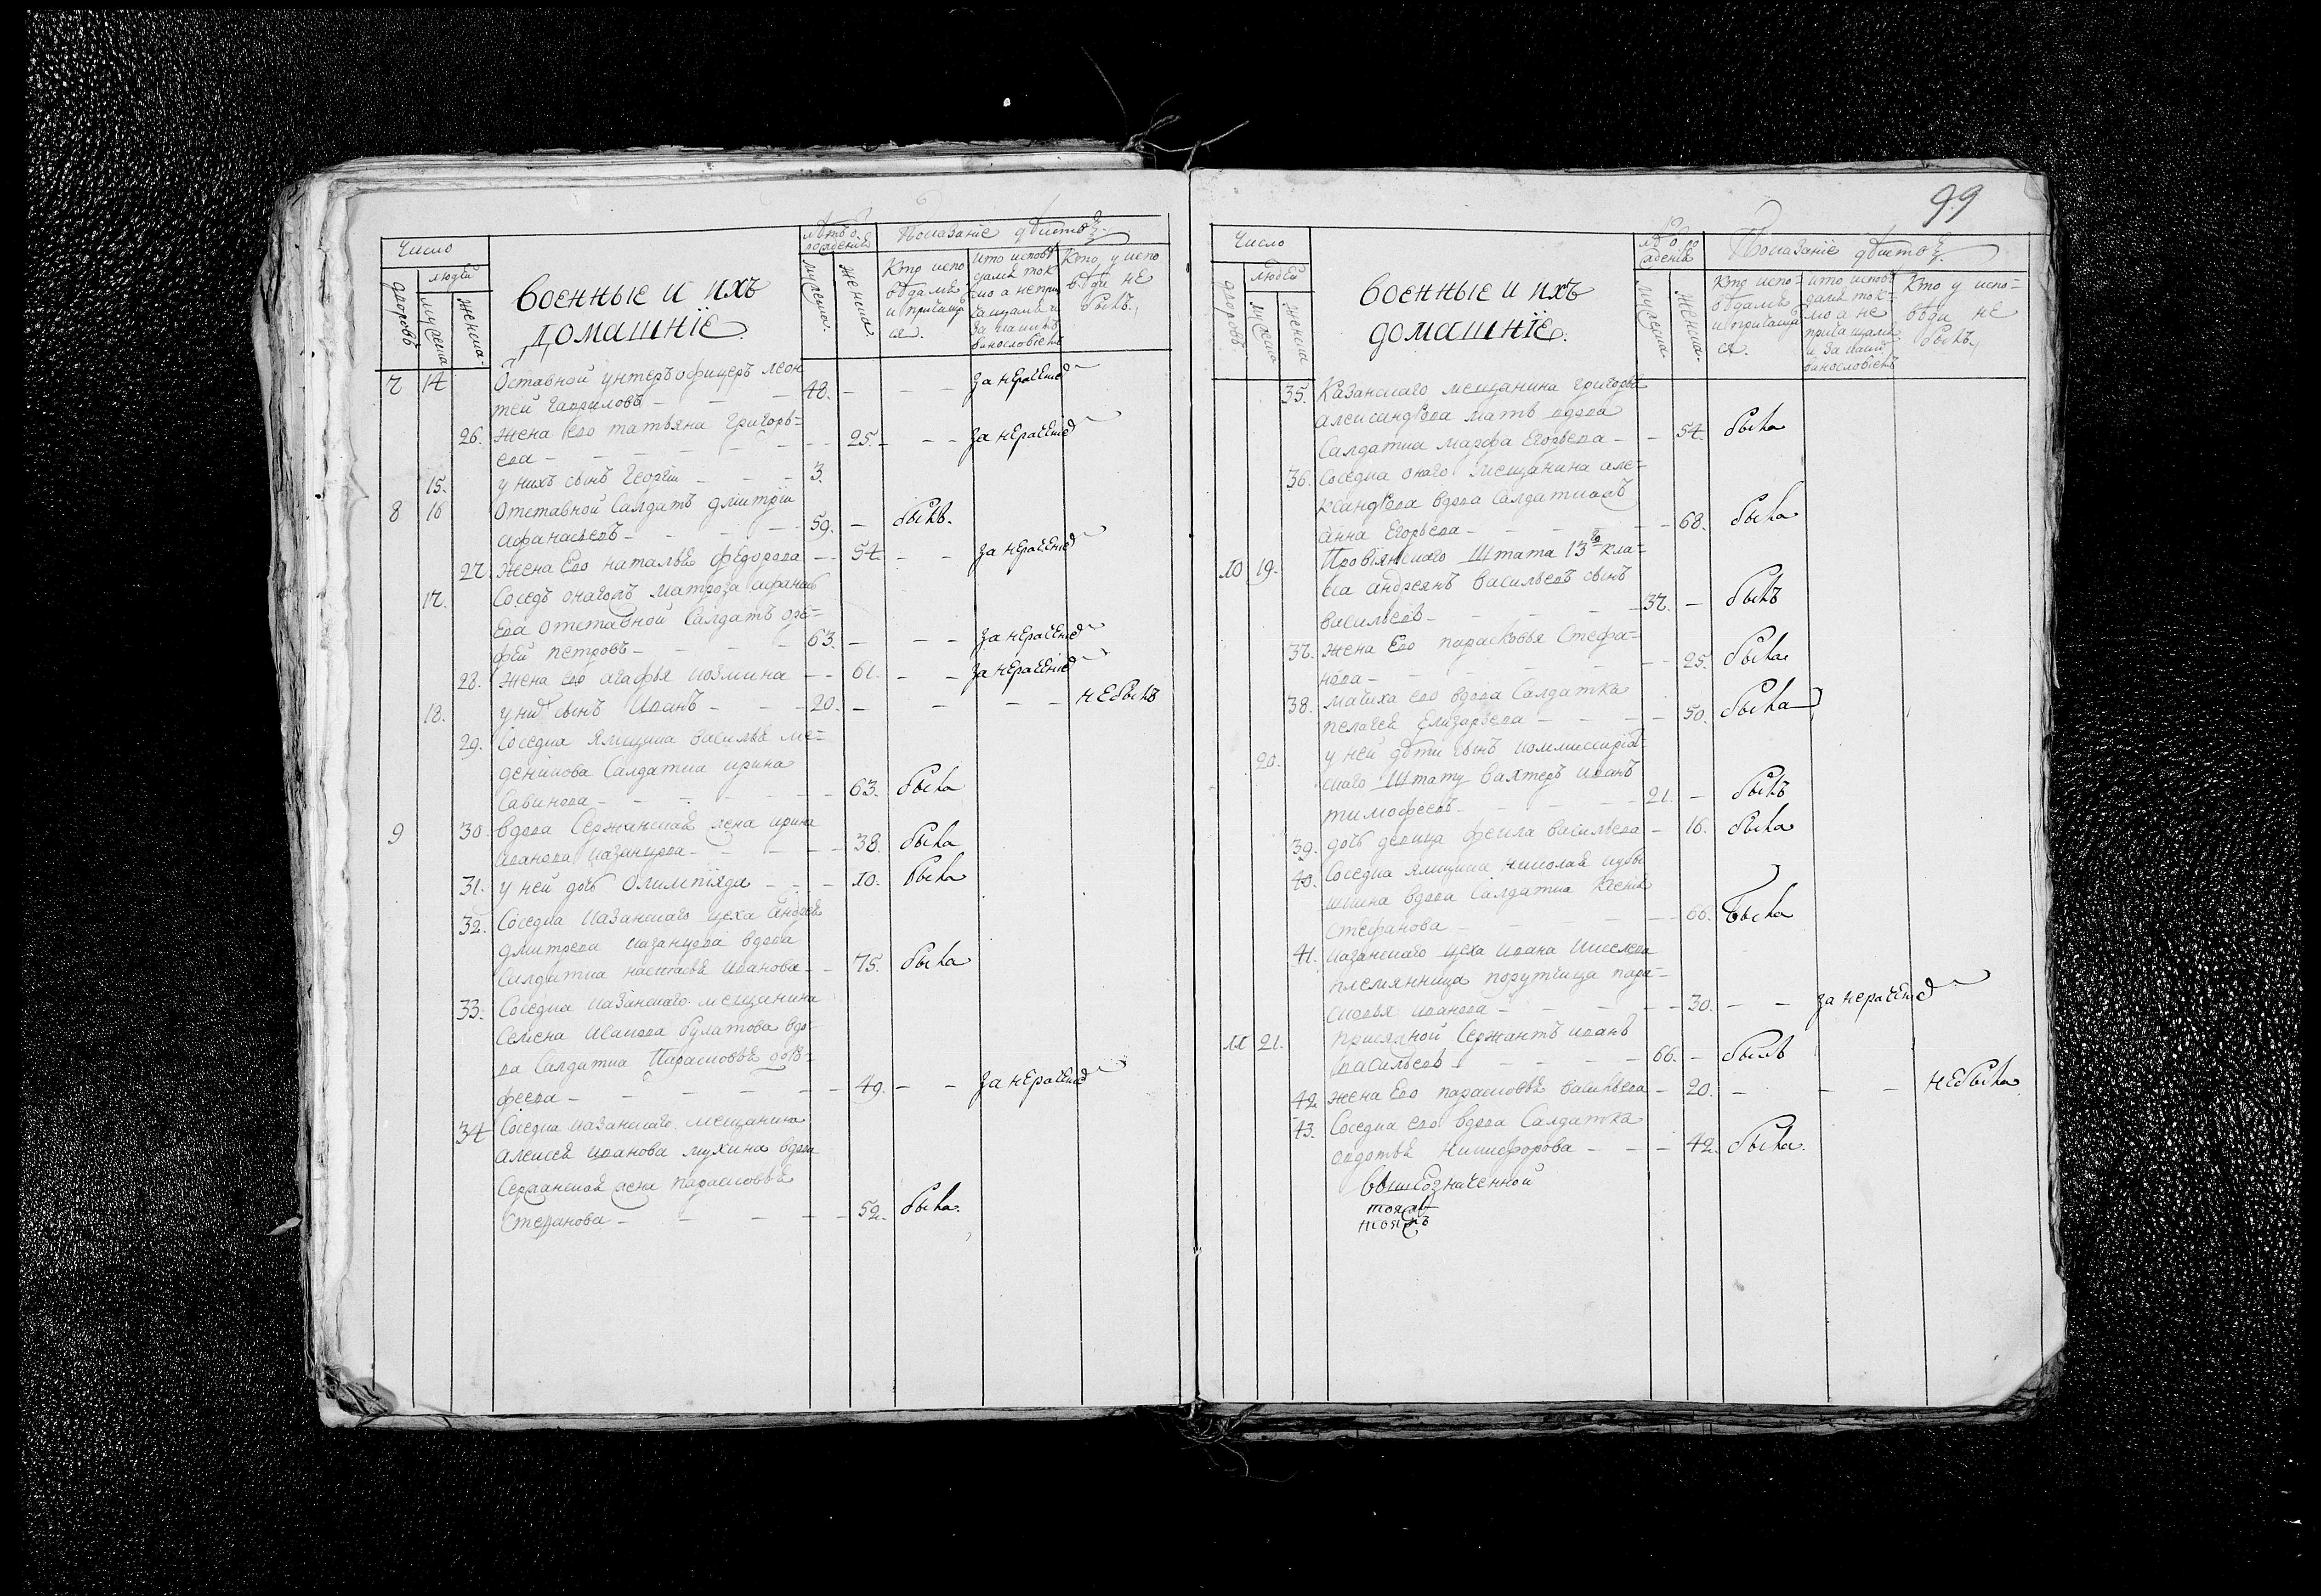 Число
Лѣтъ о рожденія
Показаніе дѣйствъ
людей
дворовъ
мужеска
женска
военные и ихъ
домашнїе.
мужеска
женска
Кто испо
вѣдался
и причаща
ся.
кто исповѣ
дался ток
мо а не при
чащался и
за какимъ
винословіемъ
Кто у испо
вѣди не
былъ.
7 14 Оставной унтеръ офицеръ леон
тей Гаврилова — 48. — за нерачение
26. жена ево татьяна григорь=
ева — 25. — за нерачение
15. у нихъ сынъ Георгїи — 3.
8 16 Отставной Салдатъ дмитрїи
афанасьевъ — 59. — былъ.
27. жена Ево наталья федорова — 54 — за нерачение
17. Соседъ матроза афанась
ева отставной Салдатъ
фей петровъ — 63. — за нерачение
28. жена ево агафья козмина — 61. — за нерачение
18. у них сынъ Иванъ — 20. — небылъ
29. Соседка ямщика василья ме=
Салдатка ирина
Савинова — 63. была
9 30. вдова Сержанская жена ирина
иванова казанцова — 38. была
31. у ней дочь Олимпїяда — 10. была
32. Соседка казанскаго цеха андрея
дмитрева казанцова вдова
Салдатка настасья иванова — 75. была
33. Соседка казанскаго мещанина
Семена Исакова булатова вдо-
ва Салдатка Парасковья доро=
феева — 49. — за нерачение
34 Соседка казанскаго мещанина
алексея иванова мухина вдова
Сержанская жена парасковья
Степанова — 52. была.
99
Число
лѣтъ о рожденія
Показаніе дѣйствъ
людей
дворовъ
мужеска
женска
военные и ихъ
домашнїе.
мужеска
женска.
Кто испо=
вѣдался
и причаща
ся.
кто исповѣ
дался ток=
мо а не
причащался
и за каким
винословіемъ
Кто у испо=
вѣди не
былъ.
35. Казанскаго мещанина григорья
александрова мать вдова
Салдатка марфа Егорьева — 54. была
36. Соседка онаго мещанина але=
ксандрова вдова Салдатка
анна Егорьева — 68. была
10 19. Провїянскаго Штата 13го кла=
са андреянъ васильевъ сынъ
васильевъ — 37. — былъ
37. жена Ево парасковья Стефа=
нова — 25. была
38. мачиха ево вдова Салдатка
пелагея Елизарьева — 50. была
20. у ней дѣти сынъ коммисирїат=
скаго Штату вахтеръ иванъ
тимофеевъ — 21. — былъ
39. дочь девица фекла васильева — 16. была
40. Соседка ямщика николая
шкина вдова Салдатка Ксенья
Стефанова — 66. была
41. казанскаго цеха ивана киселева
племянница порутчица пара=
сковья иванова — 30. — за нерачение
11 21. присяжной Сержантъ иванъ
васильевъ — 66. — былъ
42 жена Ево парасковья васильева — 20. — небыла
43. Соседка ево вдова Салдатка
авдотья никифорова — 42. была.
вышеозначенной